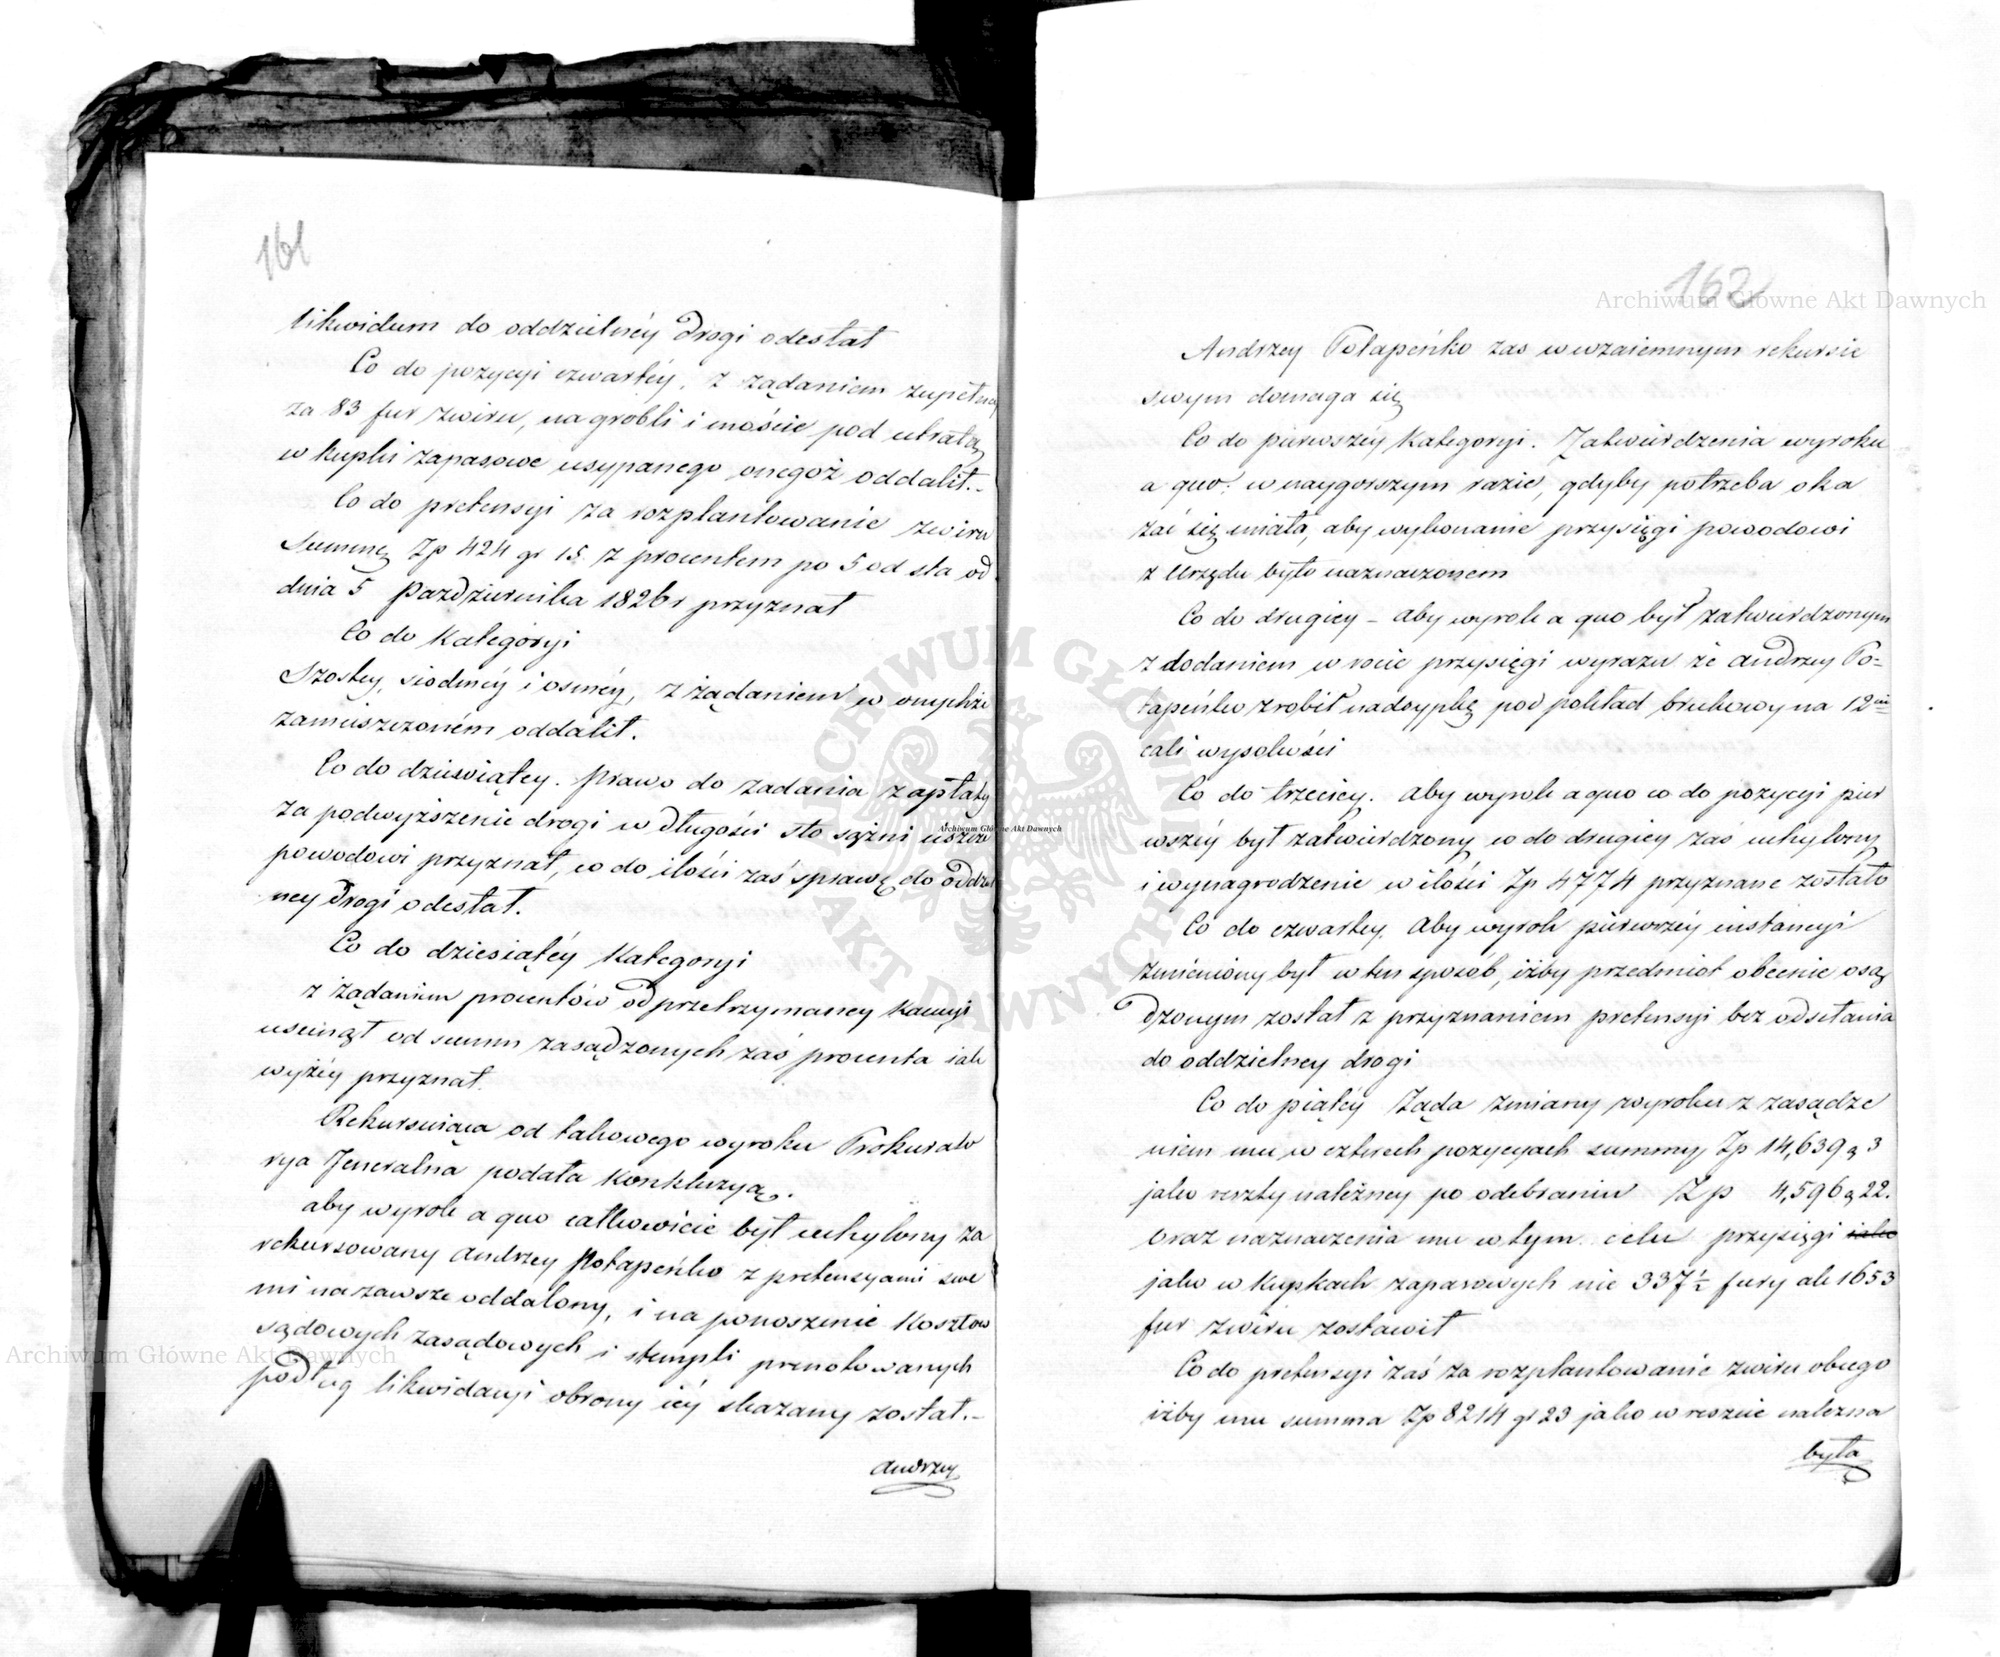 161
likwidum do oddzielnéy drogi odesłał
Co do pozycyi czwartéy, z żądaniem zupełney
za 83 fur żwiru, na grobli i moście pod utratą
w kupki zapasowe usypanego onegoż oddalił.-
Co do pretensyi za rozplantowanie żwiru
Summę Zp 424 gr 15 z procentem po 5 od sta od
dnia 5 Października 1826 r przyznał
Co do Kategoryi
Szóstey, siódméy i ósméy, z żądaniem w onychże
zamieszczoném oddalił.
Co do dziewiątey. prawo do żądania zapłaty
za podwyższenie drogi w długości sto sążni ieszcze
powodowi przyznał, co do ilości zaś sprawę do oddziel
ney drogi odesłał.
Co do dziesiątéy Kategoryi
z żądaniem procentów od przetrzymaney kaucyi
usunął od summ zasądzonych zaś procenta iak
wyżéy przyznał.
Rekursuiąca od takowego wyroku Prokurato
rya Jeneralna podała konkluzyą.
aby wyrok a quo całkowicie był uchylony za
rekursowany Andrzey Potapeńko z pretensyami swe
mi na zawsze oddalony, i na ponoszenie kosztów
sądowych zasądowych i stempli prenotowanych
podług likwidacyi obrony iéy skazany został.-
Andrzey
162
Andrzey Potapeńko zaś w wzaiemnym rekursie
swym domaga się
Co do pierwszéy Kategoryi. Zatwierdzenia wyroku
a quo: w naygorszym razie, gdyby potrzeba oka
zać się miała, aby wykonanie przysięgi powodowi
z Urzędu było naznaczonem
Co do drugiey - aby wyrok a quo był zatwierdzonym
z dodaniem w rocie przysięgi wyrazu że Andrzey Po=
tapeńko zrobił nadsypkę pod pokład brukowy na 12 in
cali wysokości
Co do trzeciey. aby wyrok a quo co do pozycyi pier
wszéy był zatwierdzony co do drugiey zaś uchylony
i wynagrodzenie w ilości Zp 4774 przyznane zostało
Co do czwartey. Aby wyrok pierwszéy instancyi
zmieniony był w ten sposób, iżby przedmiot obecnie osą
dzonym został z przyznaniem pretensyi bez odsełania
do oddzielney drogi
Co do piątéy Żąda zmiany wyroku z zasądze
niem mu w czterech pozycyach summy Zp 14,639 g 3
jako reszty należney po odebraniu Zp 4,596 g 22.
oraz naznaczenia mu w tym celu przysięgi iako
jako w kupkach zapasowych nie 337½ fury ale 1653
fur żwiru zostawił
Co do pretensyi zaś za rozplantowanie żwiru obcego
iżby mu summa Zp 8214 gr 23 jako w reszcie należna
była
Archiwum Główne Akt Dawnych
Archiwum Główne Akt Dawnych
Archiwum Główne Akt Dawnych
ARCHIWUM GŁÓWNE AKT DAWNYCH